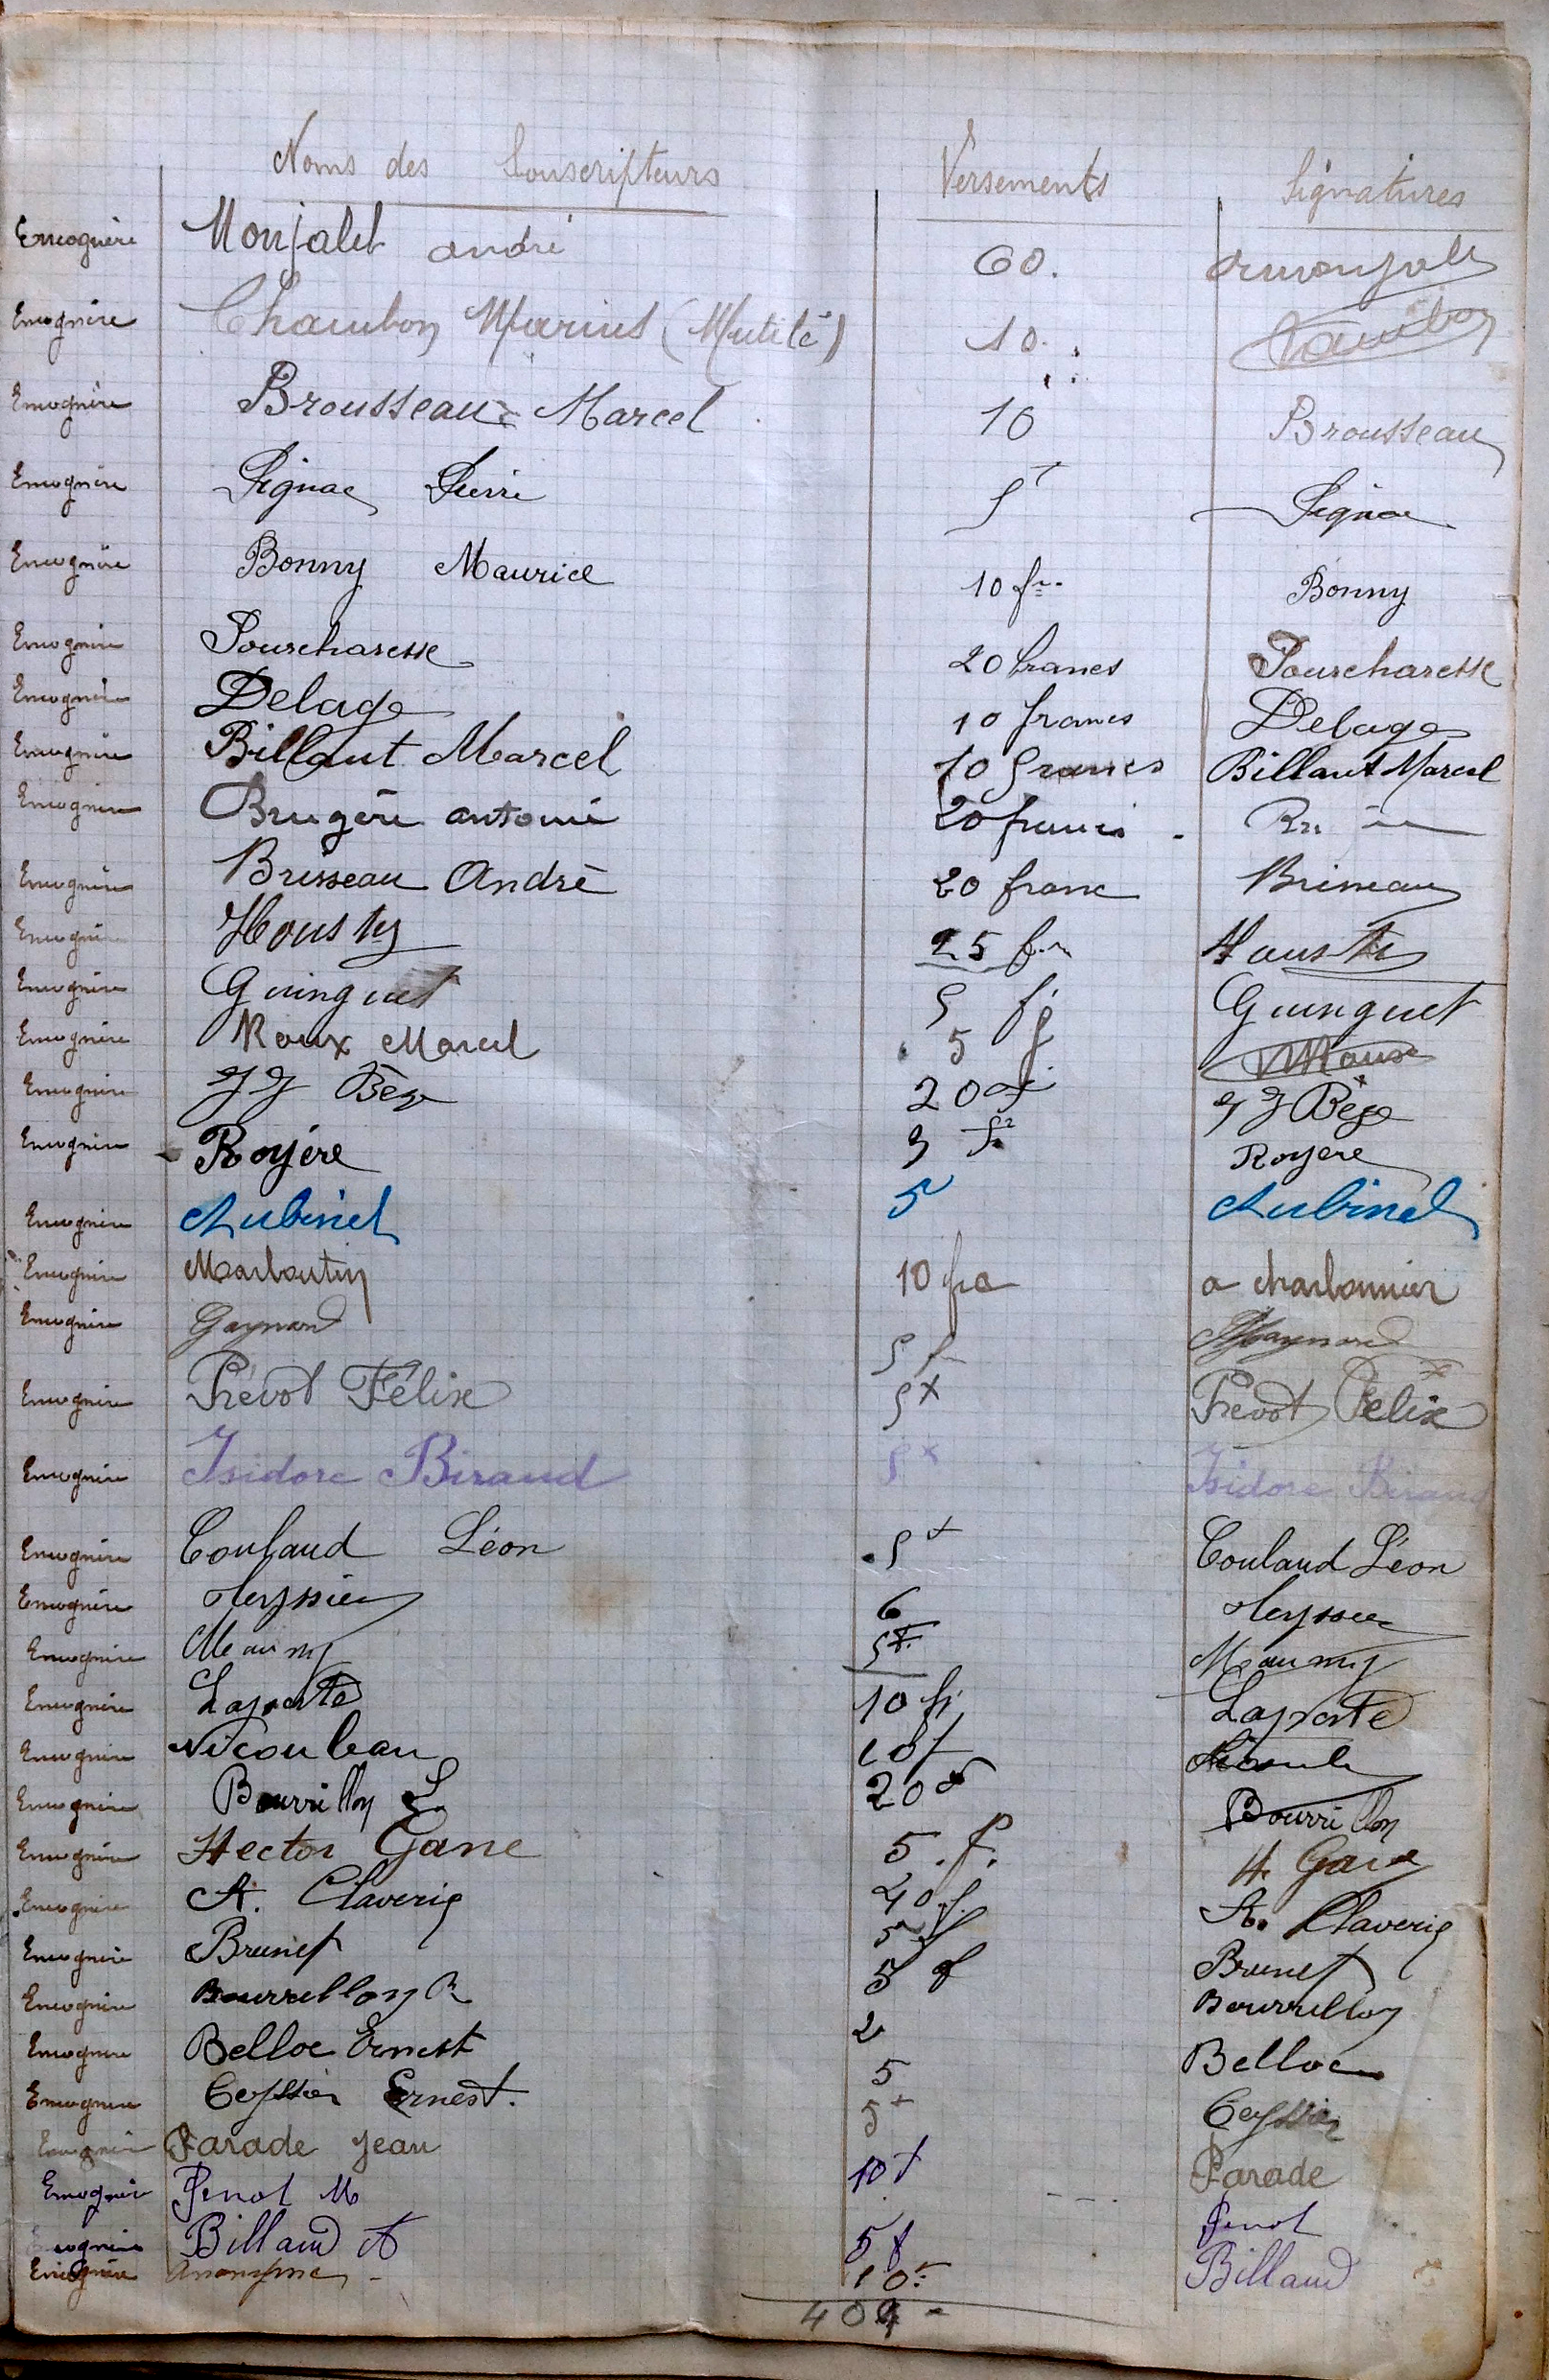 Noms des Souscripteurs Versements Signatures
Encognère Monjalet andré 60. amonjale
Encognère Chambon Marius (Mutilé) 10. Chambon
Encognère Brousseau Marcel 10 Brousseau
Encognère Signac Pierre 5f Signac
Encognère Bonny Maurice 10 frs Bonny
Encognère Pourcharesse 20 francs Pourcharesse
Encognère Delage 10 francs Delage
Encognère Billaut Marcel 10 francs Billaut Marcel
Encognère Brugère antoine 20 francs
Encognère Brisseau André 20 franc Brisseau
Encognère Housty 25 fr Housty
Encognère Guinguet 5 f Guinguet
Encognère Roux Marcel 5 f
Encognère JJ Bège 20 f JJ Bège
Encognère Royère 3 fr Royere
Encognère Aubinel 5 Aubinel
Encognère Marboutin 10 fra a charbonnier
Encognère Gaynard 5 f Gaynard
Encognère Prévot Félix 5f Prevot Felix
Encognère Isidore Biraud 5f Isidore Biraud
Encognère Coulaud Léon 5f Coulaud Léon
Encognère Teyssier 6 Teyssier
Encognère Maumy 5f Maumy
Encognère Laporte 10 fr Laporte
Encognère Nicouleau 10f
Encognère Bourrillon L 20f Bourrillon
Encognère Hector Gane 5.f. H. Gane
Encognère A. Claverie 20.f. A. Claverie
Encognère Brunet 5 f Brunet
Encognère Bourrellon R 5 f Bourrellon
Encognère Belloc Ernest 2 Belloc
Encognère Ceyssier Ernest. 5 Ceyssier
Encognère Parade jean 5f Parade
Encognère Penot M 10f Penot
Encognère Billaud A 5f Billaud
Encognère Anonyme - 10f
404 -